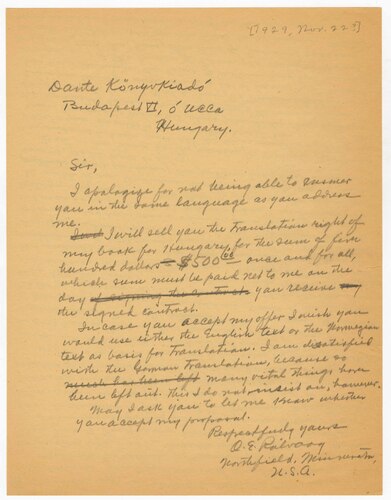 [1929, Nov. 22?]
Dante Könyvkiadó
Budapest VI, ó ucca
Hungary.
Sir,
I apologize for not being able to answer
you in the same language as you address
me.
I will sell you the translation right of
my book for Hungary, for the sum of five
hundred dollars — $500.00 — once and for all,
which sum must be paid net to me on the
day of signing the contract you receive my
the signed contract.
In case you accept my offer I wish you
would use either the English text or the Norwegian
text as basis for translation. I am dissatisfied
with the German translation, because so
much has been left many vital things have
been left out. this I do not insist on, however.
May I ask you to let me know whether
you accept my proposal.
Respectfully yours
O. E. Rölvaag
Northfield, Minnesota,
U.S.A.